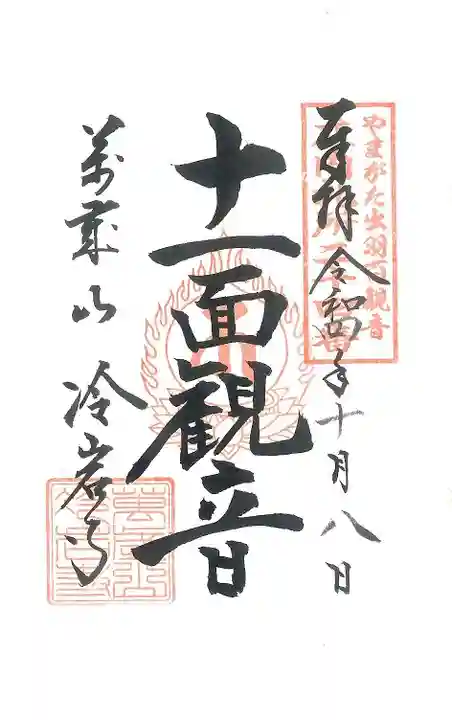 やまがた出羽百観音
奉拝 令和四年十月八日
十一面観音
萬歳山 冷岩寺